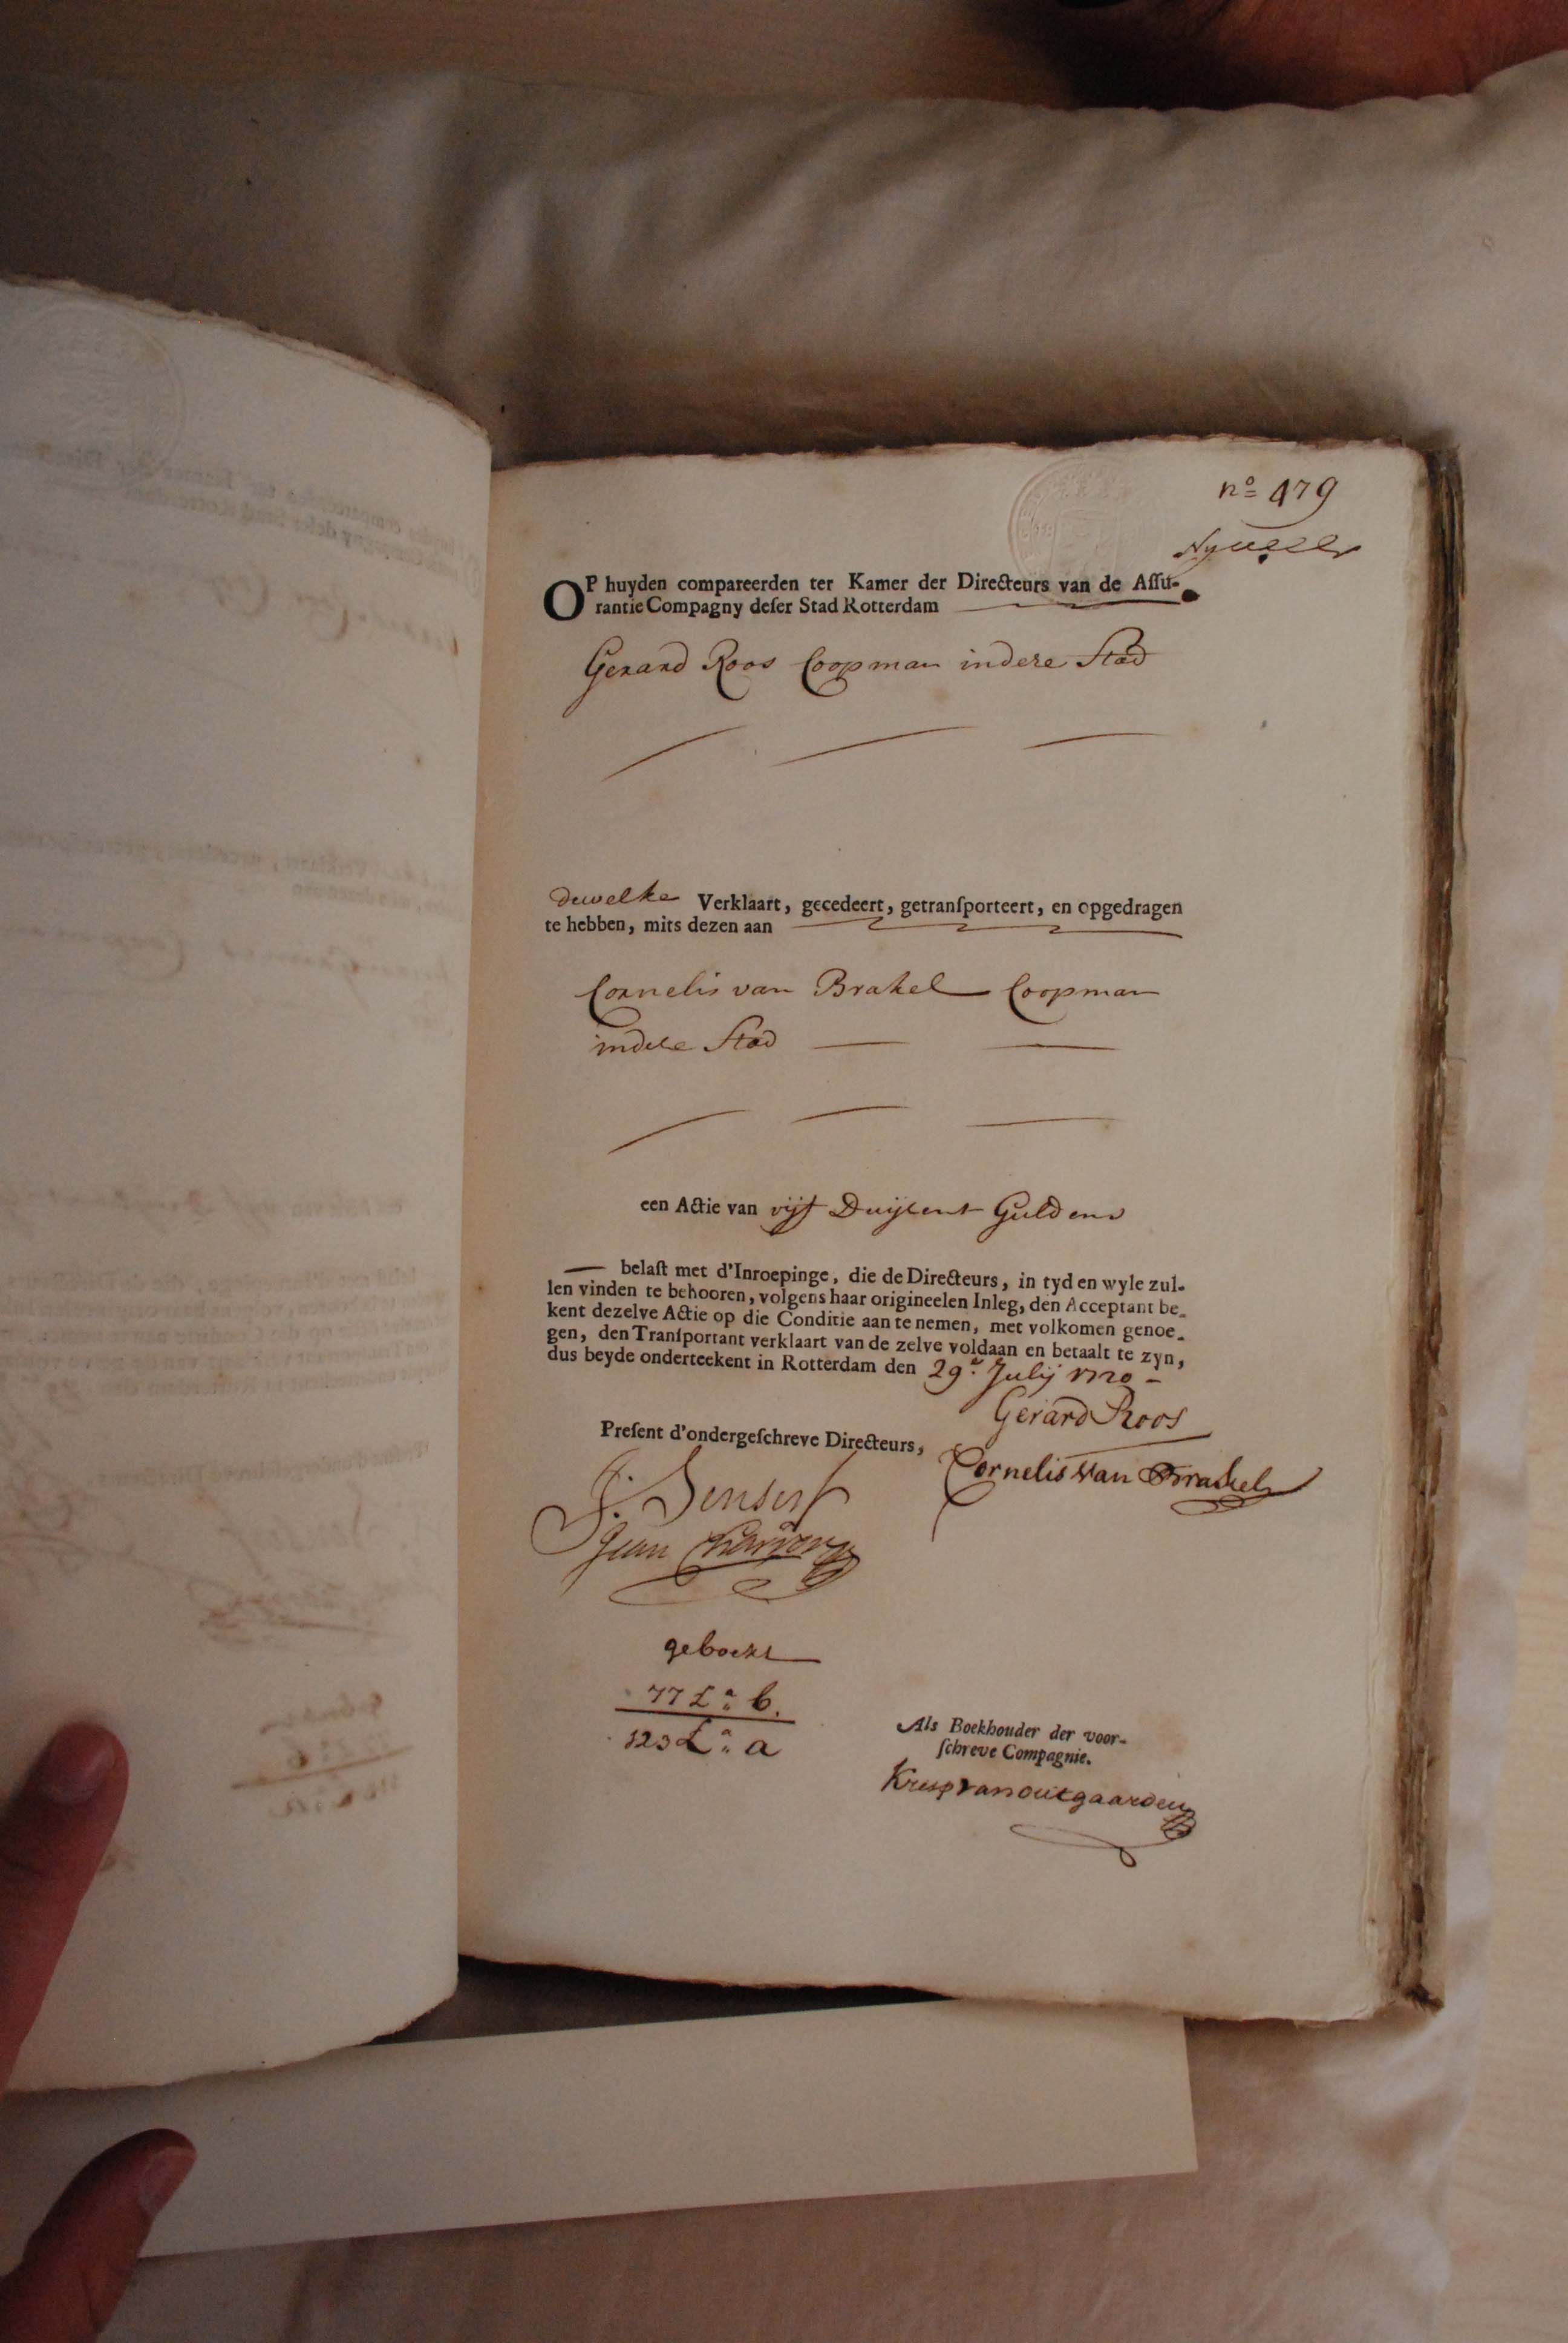 nº 479
OP huyden compareerden ter Kamer der Directeurs van de Aſſu-
rantie Compagny deſer Stad Rotterdam
Gerard Roos Coopman indese Stad
dewelke Verklaart, gecedeert, getranſporteert, en opgedragen
te hebben, mits dezen aan
Cornelis van Brakel Coopman
indese Stad
een Actie van vijf Duijsent Guldens
belaſt met d'Inroepinge, die de Directeurs, in tyd en wyle zul-
len vinden te behooren, volgens haar origineelen Inleg, den Acceptant be-
kent dezelve Actie op die Conditie aan te nemen, met volkomen genoe-
gen, den Tranſportant verklaart van de zelve voldaan en betaalt te zyn,
dus beyde onderteekent in Rotterdam den 29e Julij 1720
Gerard Roos
Preſent d'ondergeſchreve Directeurs,
Cornelis van Brakel
J. Senserf
Jean
geboekt
77 La b.
123 La a
Als Boekhouder der voor-
ſchreve Compagnie.